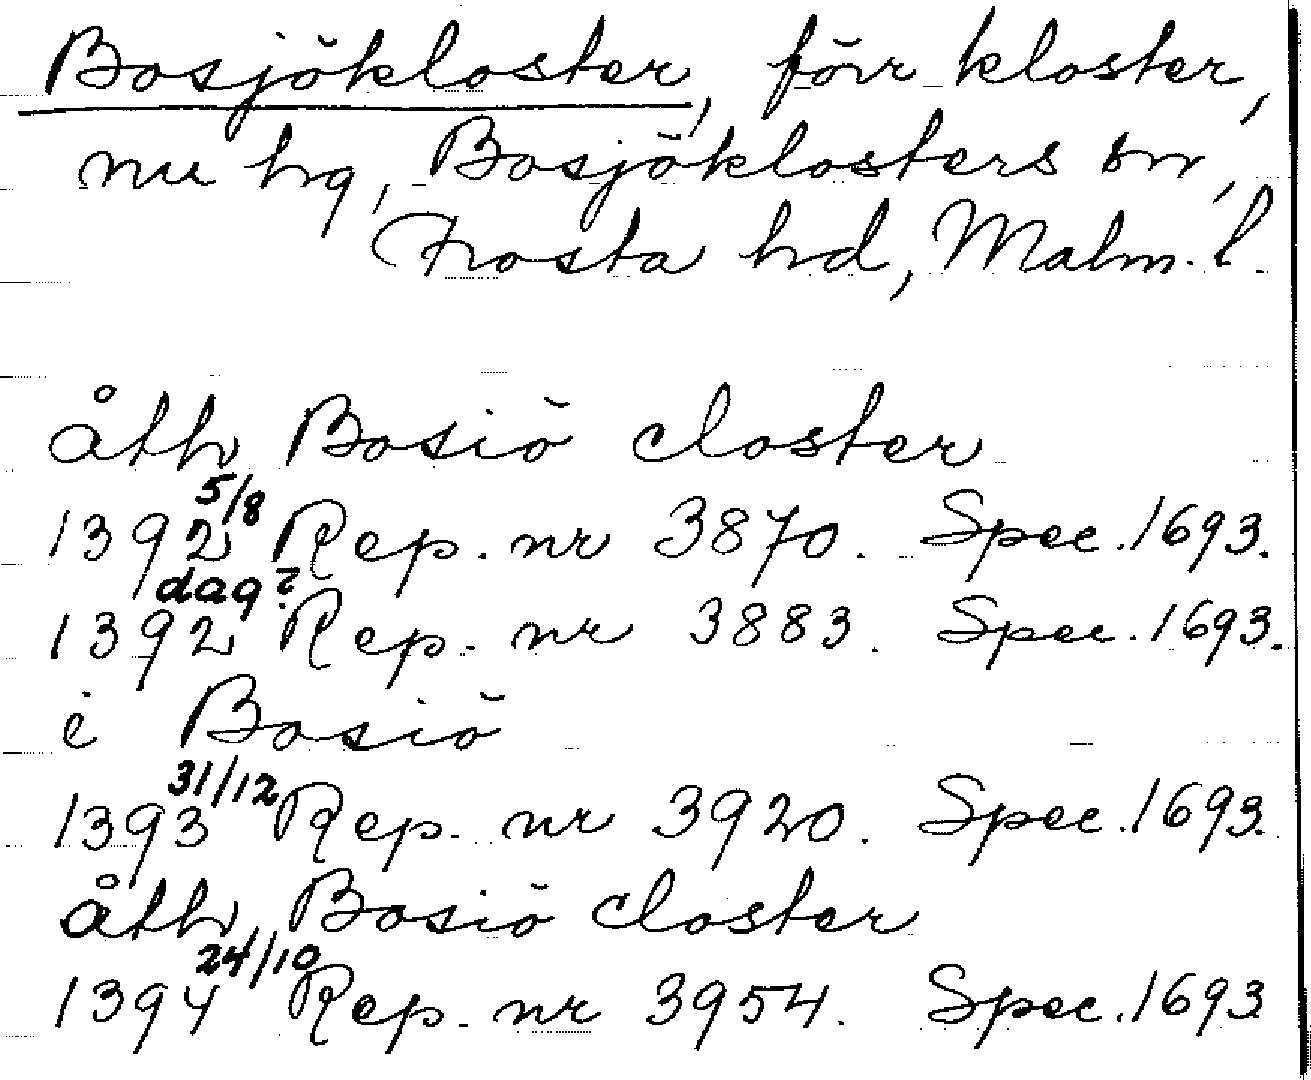 Bosjökloster, förr kloster,
nu hg, Bosjöklosters sn,
Frosta hd, Malm. l.
åth Bosiö closter
1392 5/8 Rep. nr 3870. Spec. 1693.
1392 dag? Rep. nr 3883. Spec. 1693.
i Bosiö
1393 31/12 Rep. nr 3920. Spec. 1693.
åth Bosiö closter
1394 24/10 Rep. nr 3954. Spec. 1693